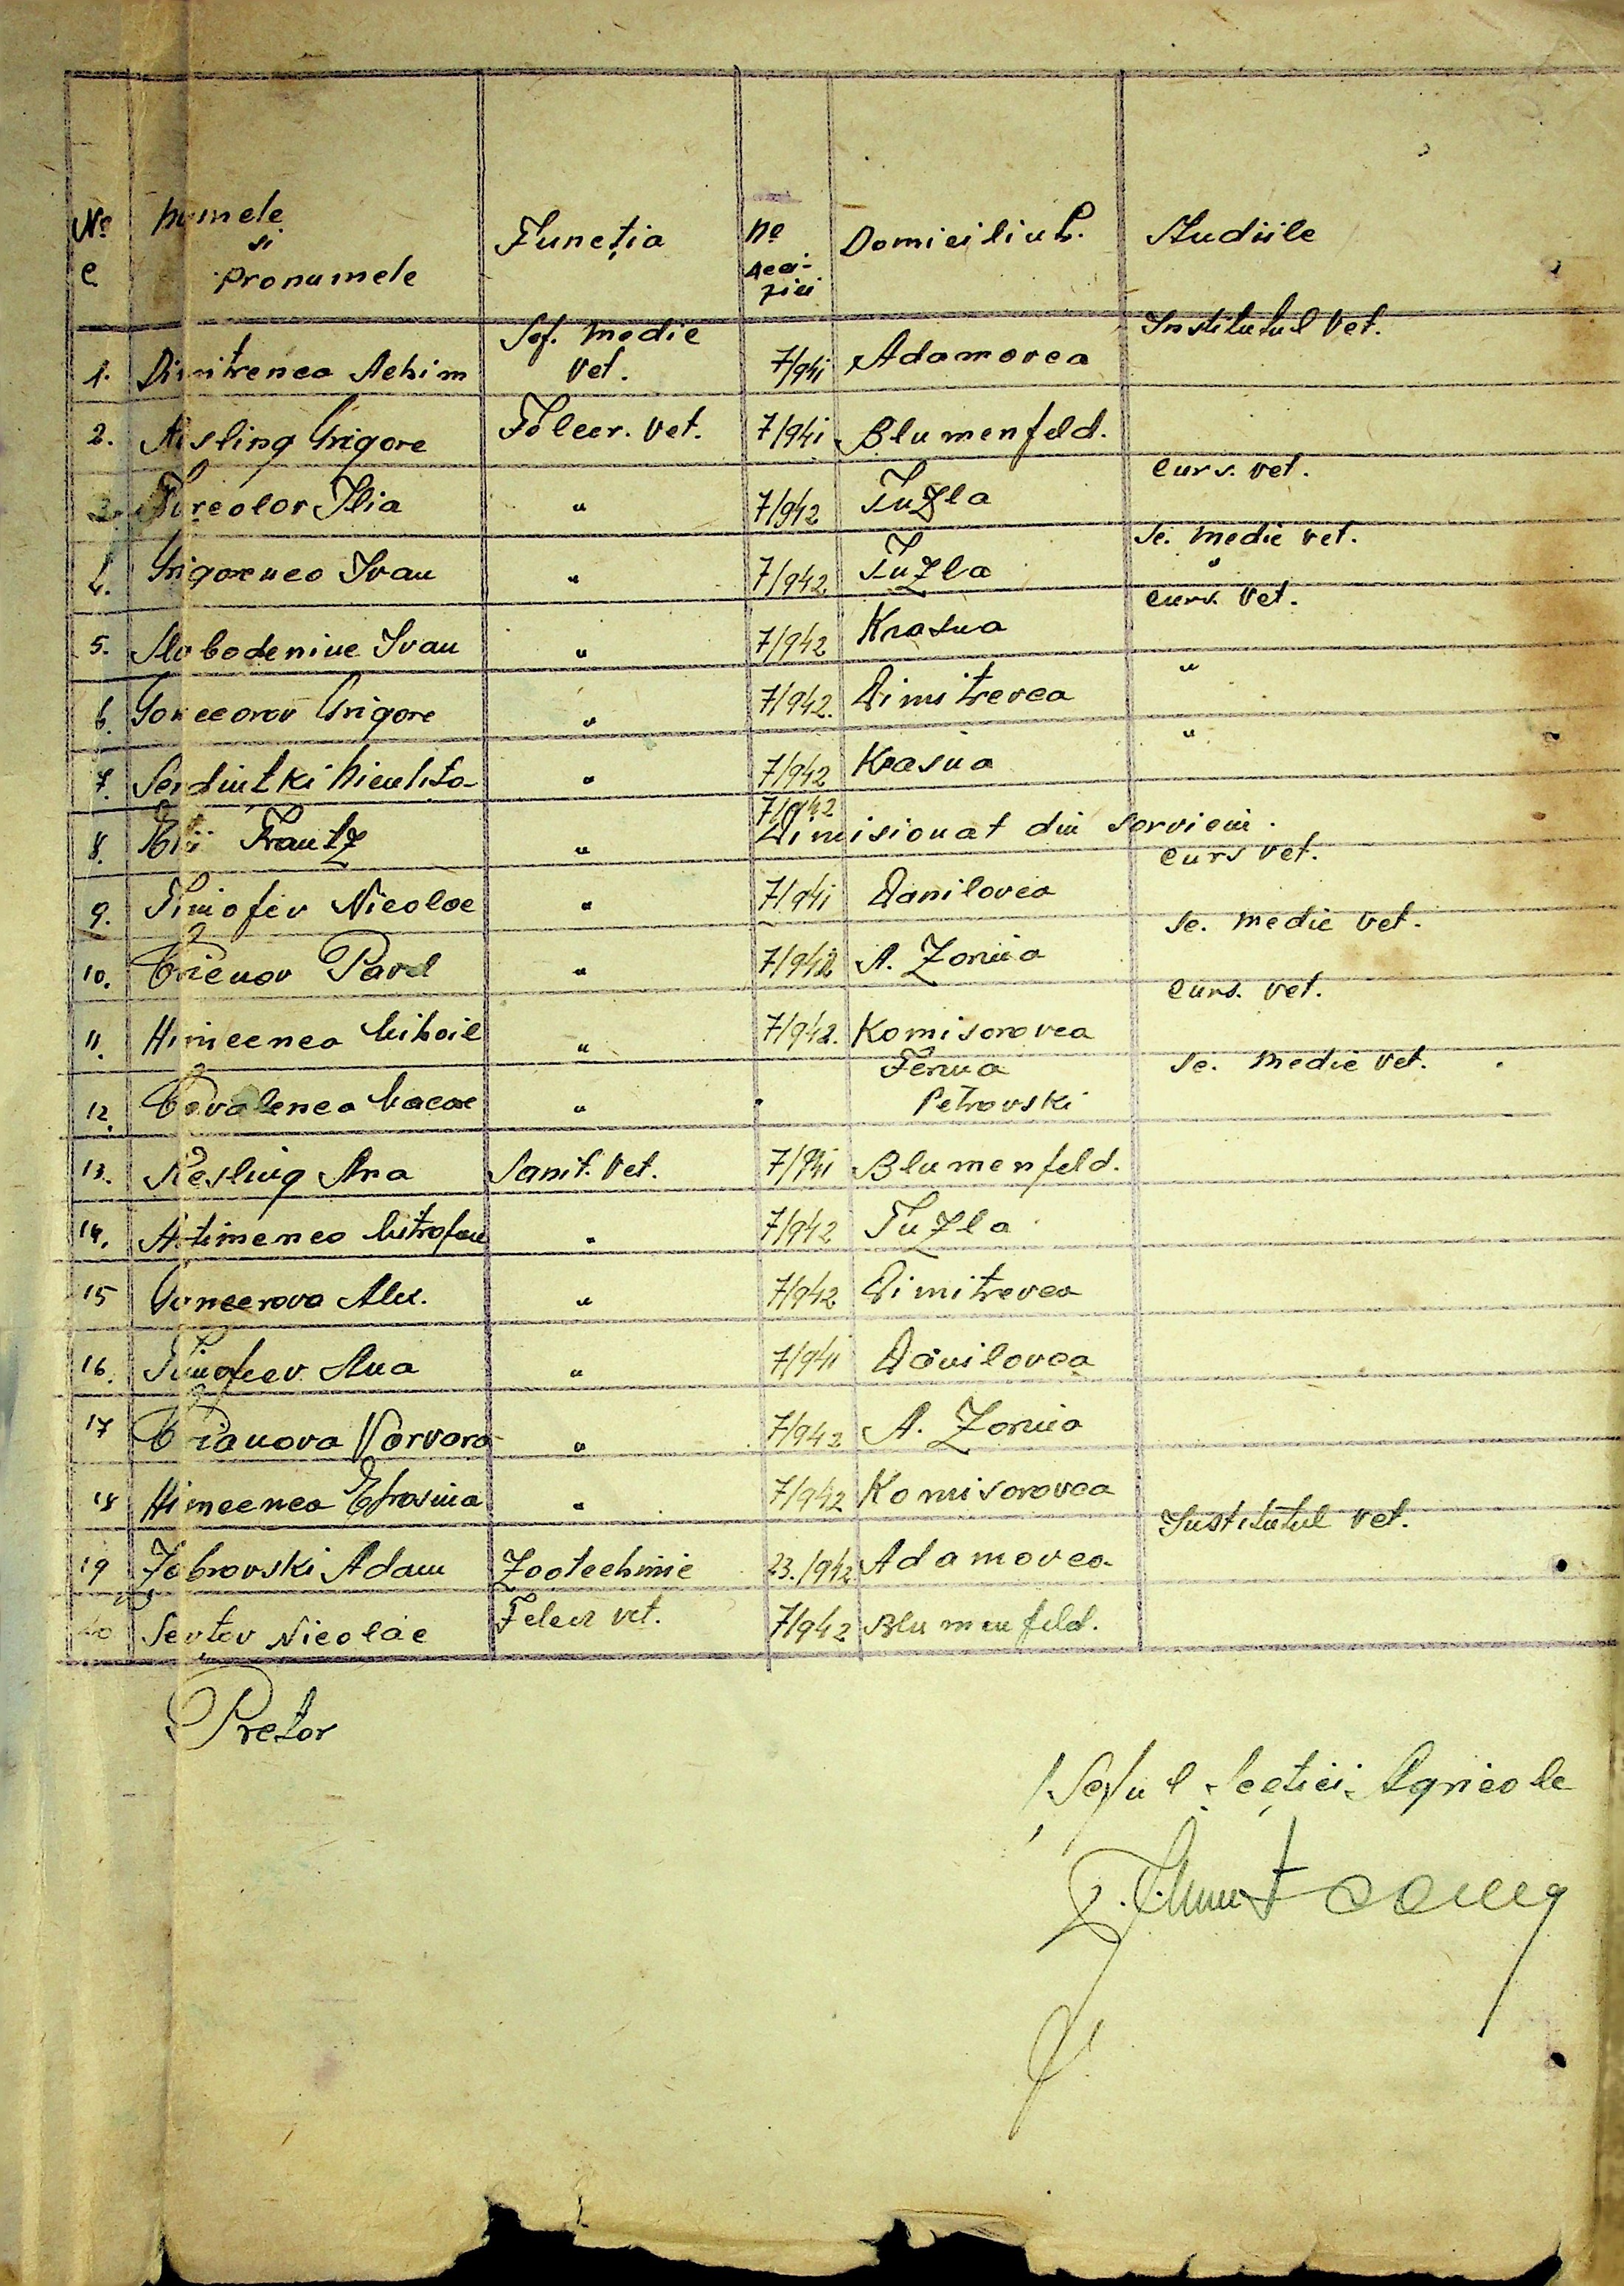 No c | Numele si Pronumele | Funcția | No Deciziei | Domiciliul. | Studiile
1. | Dimitrenco Achim | Sef. medic Vet. | 7/941 | Adamovca | Institutul Vet.
2. | Kisling Grigore | Felcer. Vet. | 7/941 | Blumenfeld. |
3. | Ilia | " | 7/942 | Tuzla | Curs. vet.
4. | Grigorenco Ivan | " | 7/942 | Tuzla | Sc. medie vet. "
5. | Slobodeniuc Ivan | " | 7/942 | Krasna | Curs. Vet.
6. | Goncearov Grigore | " | 7/942. | Dimitrovca | "
7. | Niculita | " | 7/942 | Krasna | "
8. | Frantz | " | 7/942 Dimisionat din serviciu.
9. | Timofev Nicolae | " | 7/941 | Danilovca | Curs vet.
10. | Pavel | " | 7/942 | A. Zornia | Sc. medie vet.
11. | Himcenco Mihail | " | 7/942. | Komisarovca | Curs. vet.
12. | Covalenco Macar | " | | Ferma Petrovski | Sc. medie vet.
13. | Kesling Ana | Sanit. Vet. | 7/941 | Blumenfeld. |
14. | Mitrofan | " | 7/942 | Tuzla |
15 | Goncerova Alex. | " | 7/942 | Dimitrovca |
16. | Timofeev Ana | " | 7/941 | Danilovca |
17 | Varvara | " | 7/942 | A. Zornia |
18 | Himcenco Efrosinia | " | 7/942 | Komisarovca |
19 | Zobrovski Adam | Zootechnic | 23./942 | Adamovca | Institutul vet.
20 | Nicolae | Felcer vet. | 7/942 | Blumenfeld. |
Pretor
Seful Sectiei Agricole